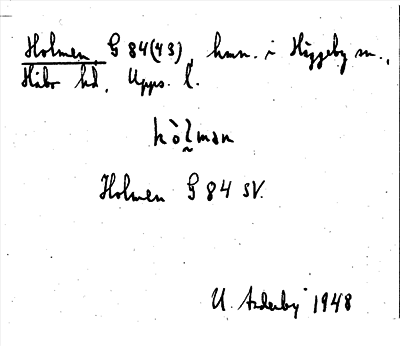 Holmen, G 84 (43), hmn. i Häggeby sn.,
Håbo hd, Upps. l.
hòlman
Holmen G 84 SV.
U. Anderby 1948